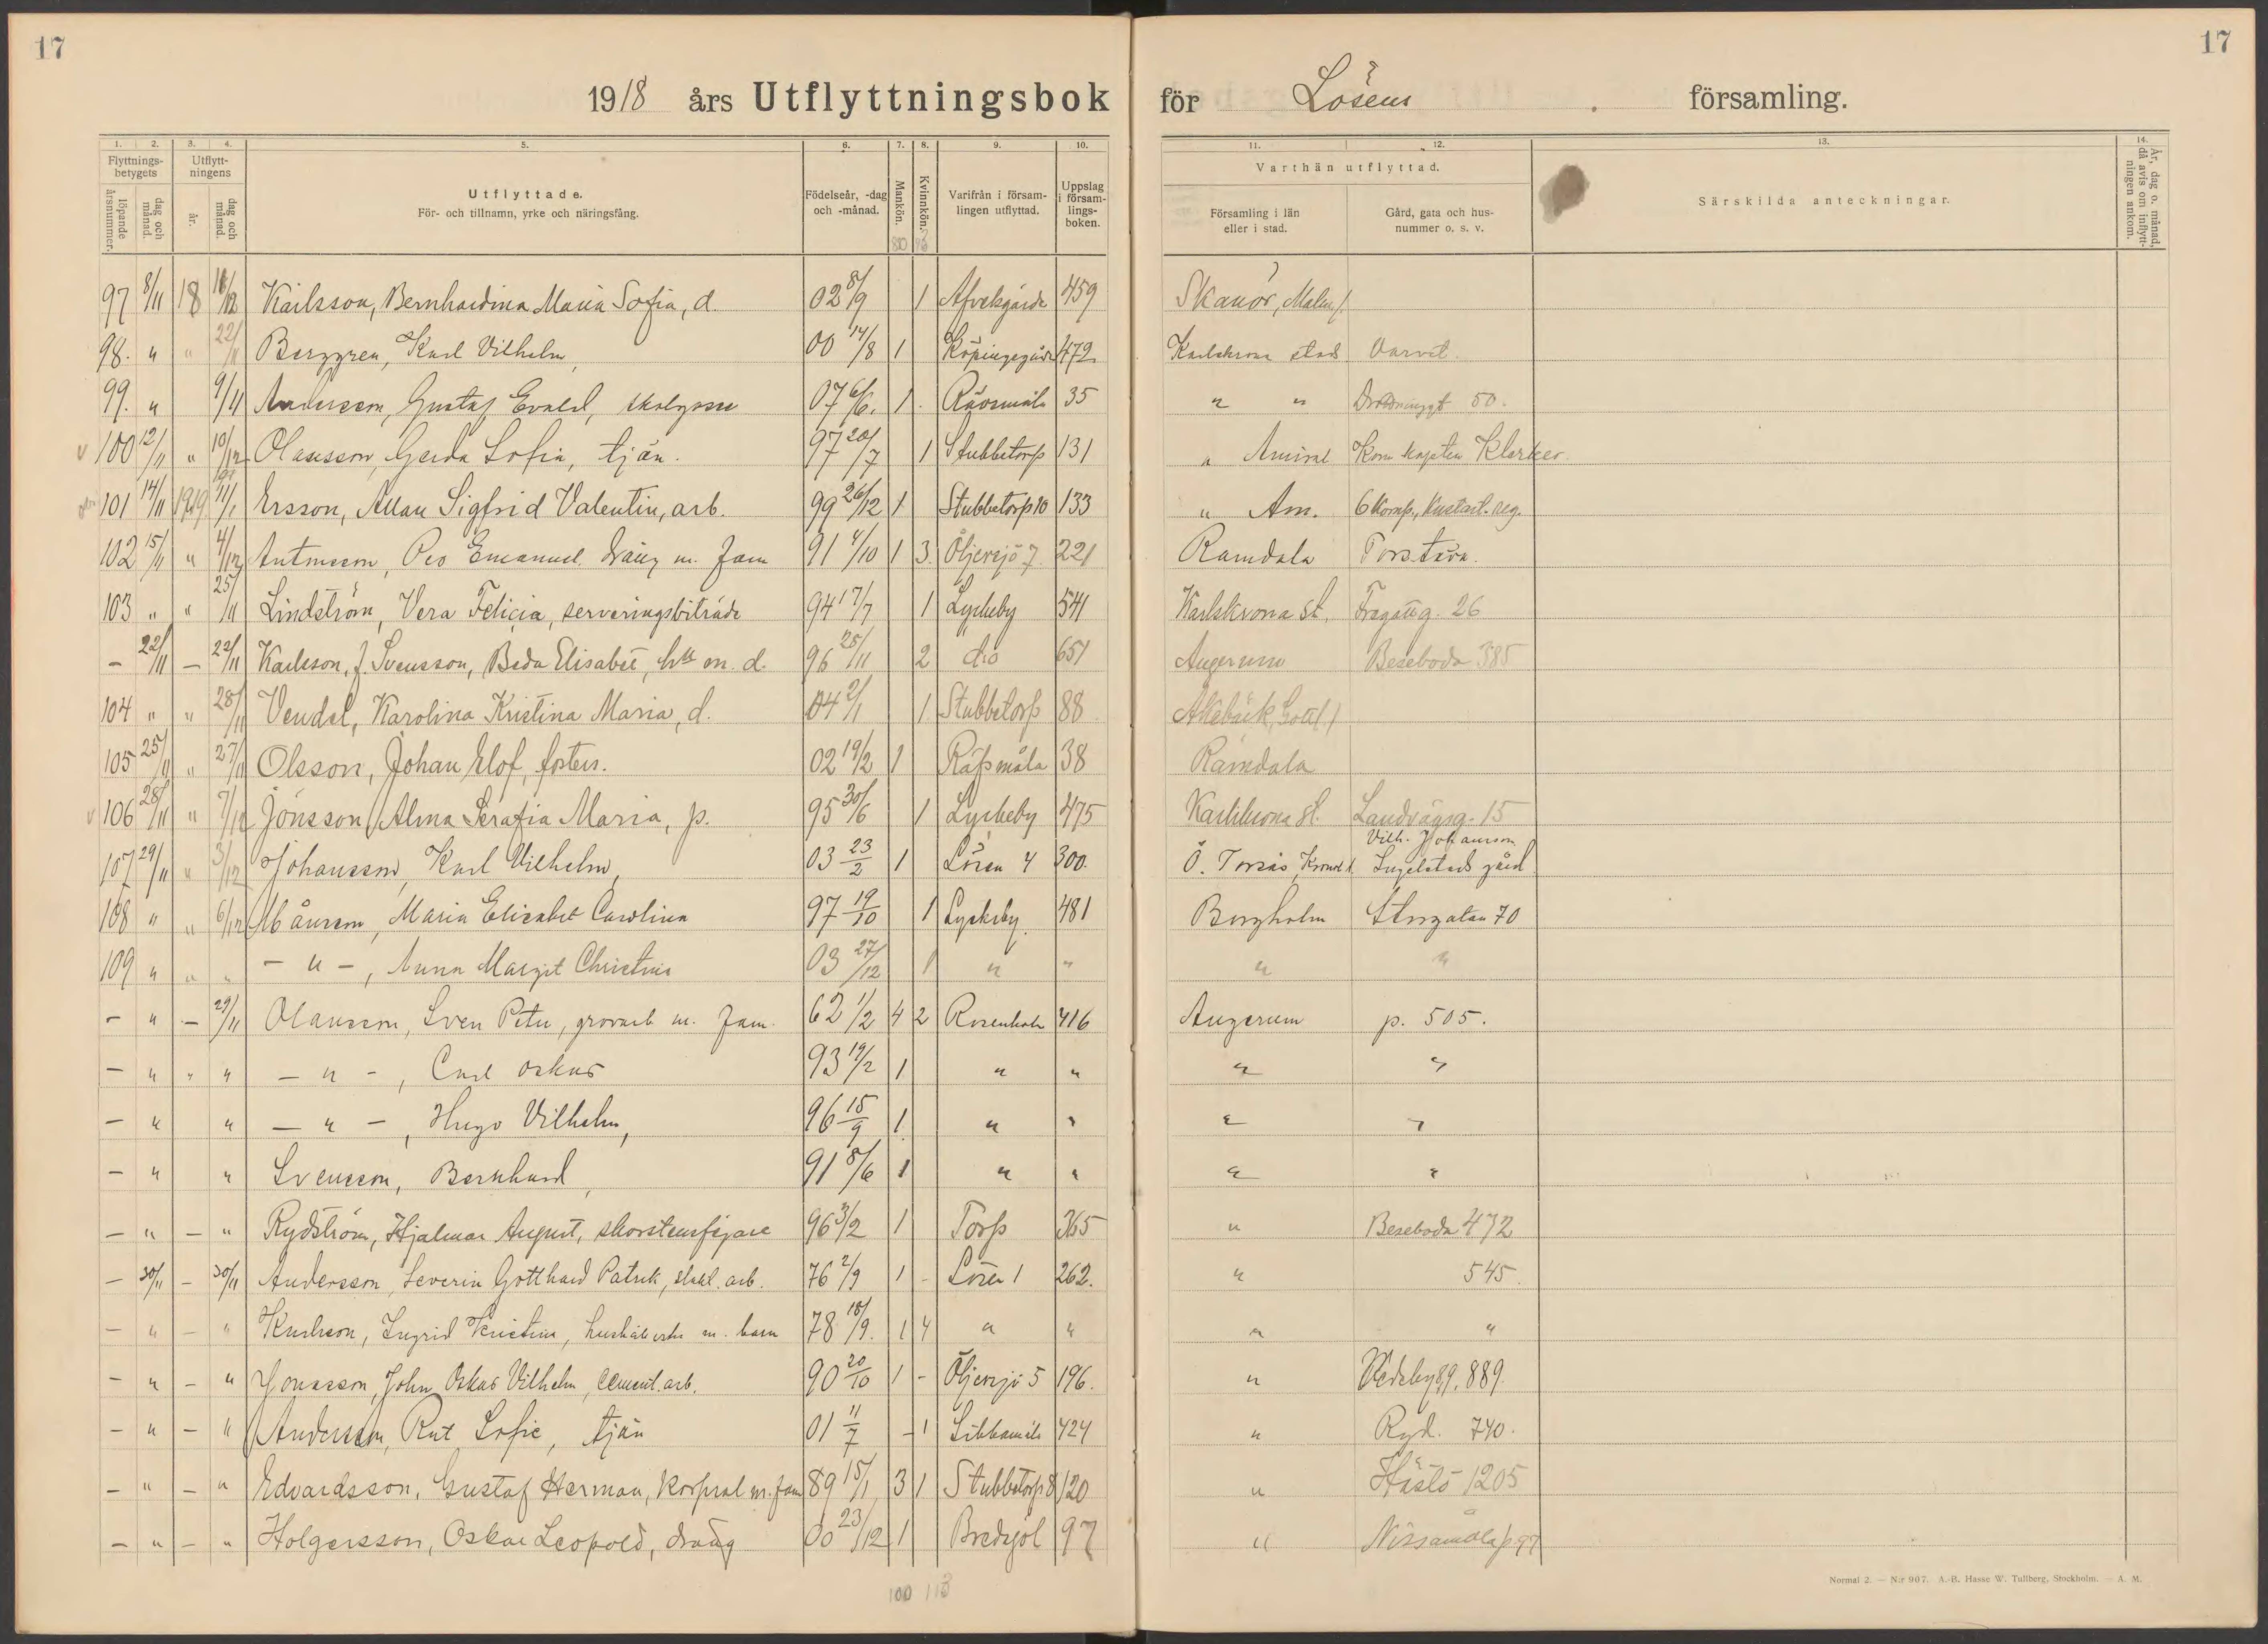 17
17
1918 års Utflyttningsbok för Lösens församling.
1. 2. 3. 4. 5. 6. 7. 8. 9. 10. 11. 12. 13. 14.
Flyttnings-betygets
löpande årsnummer.
dag och månad.
Utflytt-ningens
år.
dag och månad.
Utflyttade.
För- och tillnamn, yrke och näringsfång.
Födelseår, -dag och -månad.
Mankön.
Kvinnkön.
Varifrån i försam-lingen utflyttad.
Uppslag i försam-lings-boken.
Varthän utflyttad.
Församling i län eller i stad.
Gård, gata och hus-nummer o. s. v.
Särskilda anteckningar.
År, dag o. månad, då avis om inflytt-ningen ankom.
97 8/11 18 Karlsson, Bernhardina Maria Sofia, d. 02 8/9 1 459 Skanör, Malm.
98. " " 22/11 Berggren, Karl Vilhelm, 00 14/8 1 472 Karlskrona stad Varvet
99. " 9/11 Andersson, Gustaf Evald, skolgosse 07 6/6. 1 35 " " 50.
100 12/11 " 10/12 Olausson, Gerda Sofia, tjän. 97 20/7 1 Stubbetorp 131 " Amiral Kom kapten Klercker
101 14/11 1919 11/1 Ersson, Allan Sigfrid Valentin, arb. 99 26/12 1 Stubbetorp 10 133 " Am. 6 Komp., Kustart. reg.
102 15/11 " 4/12 Antonsson, Per Emanuel dräng m. fam 91 4/10 1 3 Öljersjö 7. 221 Ramdala Torstäva.
103 " " 25/11 Lindström, Vera Felicia, serveringsbiträde 94 17/7 1 Lyckeby 541 Karlskrona st. 26
– 22/11 – 22/11 Karlsson, f. Svensson, Beda Elisabet, h. m. d. 96 25/11 2 d:o 651 Augerum Beseboda 385
104 " " 28/11 Vendel, Karolina Kristina Maria, d. 04 2/1 1 Stubbetorp 88 Akebäck, Gottl.
105 25/11 " 27/11 Olsson, Johan Elof, fosters. 02 19/2 1 Råssmåla 38 Ramdala
106 28/11 " 7/12 Jönsson, Alma Serafia Maria, p. 95 30/6 1 Lyckeby 475 Karlskrona st. Landvägsg. 15
107 29/11 " 3/12 Johansson, Karl Vilhelm, 03 23/2 1 Lösen 4 300. Ö. Torsås, Kronob. l. Vilh. Johansson Ingelstads gård
108 " " 6/12 Månsson, Maria Elisabet Carolina 97 19/10 1 Lyckeby 481 Borgholm Storgatan 70
109 " " " – " –, Anna Margit Christina 03 27/12 1 " " " "
– " – 29/11 Olausson, Sven Peter, grovarb. m. fam. 62 1/2 4 2 Rosenholm 416 Augerum p. 505.
– " " " – " –, Carl Oskar 93 19/2 1 " " " "
– " " – " –, Hugo Vilhelm, 96 15/9 1 " " " "
– " " Svensson, Bernhard, 91 8/6 1 " " " "
– " – " Rydström, Hjalmar August, skorstensfejare 96 3/2 1 Torp 365 " Beseboda 472
– 30/11 – 30/11 Andersson, Severin Gotthard Patrik, arb. 76 2/9 1 – Lösen 1 262. " 545.
– " – " Karlsson, Ingrid Kristina, hushållerska m. barn 78 18/9. 1 4 " " " "
– " – " Jonasson, John Oskar Vilhelm, cement. arb. 90 20/10 1 – Öljersjö 5 196. " Vedeby 89, 889.
– " – " Andersson, Rut Sofie, tjän 01 11/7 – 1 424 " Ryd. 740.
– " – " Edvardsson, Gustaf Herman, korpral m. fam 89 15/1 3 1 Stubbetorp 8 120 " Hästö 1205
– " – " Holgersson, Oskar Leopold, dräng 00 23/12 1 Bredgöl 97 " Nissamåla p 97
100 113
Normal 2. — N:r 907. A.-B. Hasse W. Tullberg, Stockholm. — A. M.